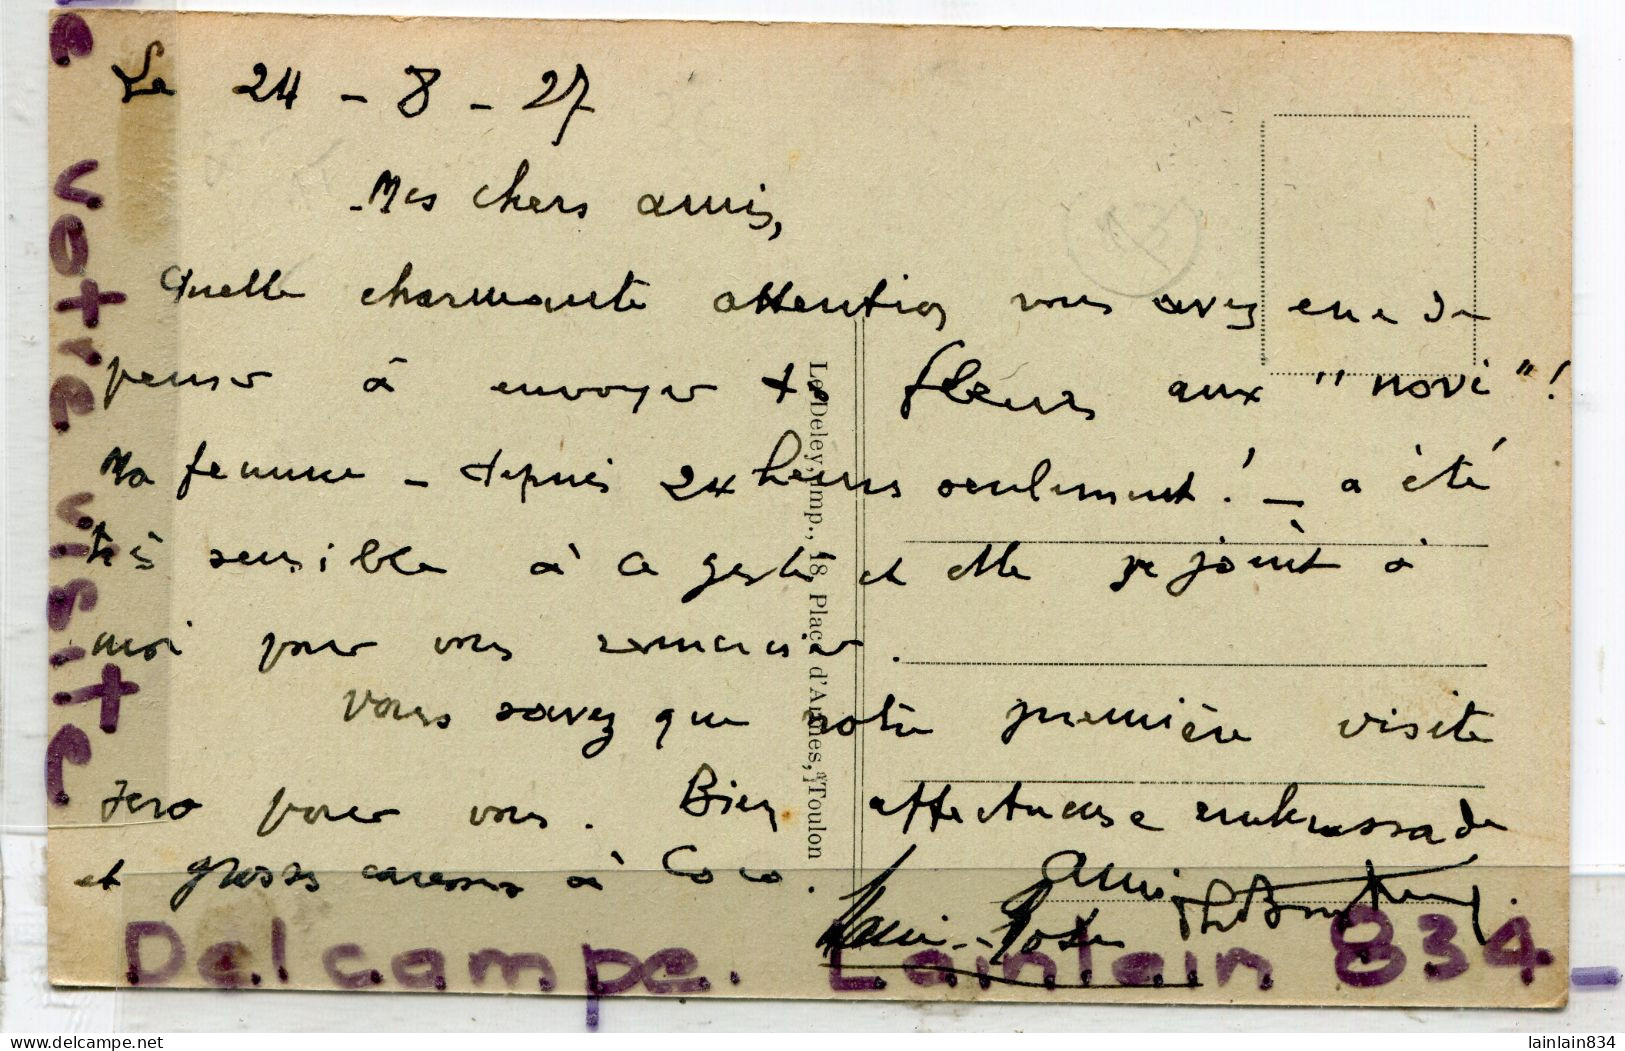 Le 24 - 8 - 27
Mes chers amis,
Quelle charmante attention vous avez eue de
penser à envoyer des fleurs aux "novi"!
Ma femme - depuis 24 heures seulement! - a été
très sensible à ce geste et elle se joint à
moi pour vous remercier.
Vous savez que notre première visite
sera pour vous. Bien affectueuse embrassade
et grosses caresses à Coco.
Marie-Rose
Le Deley, imp., 18, Place d'Armes, Toulon
votre visite
Delcampe. Lainlain 834 -
Merci de votre visite
lainlain834